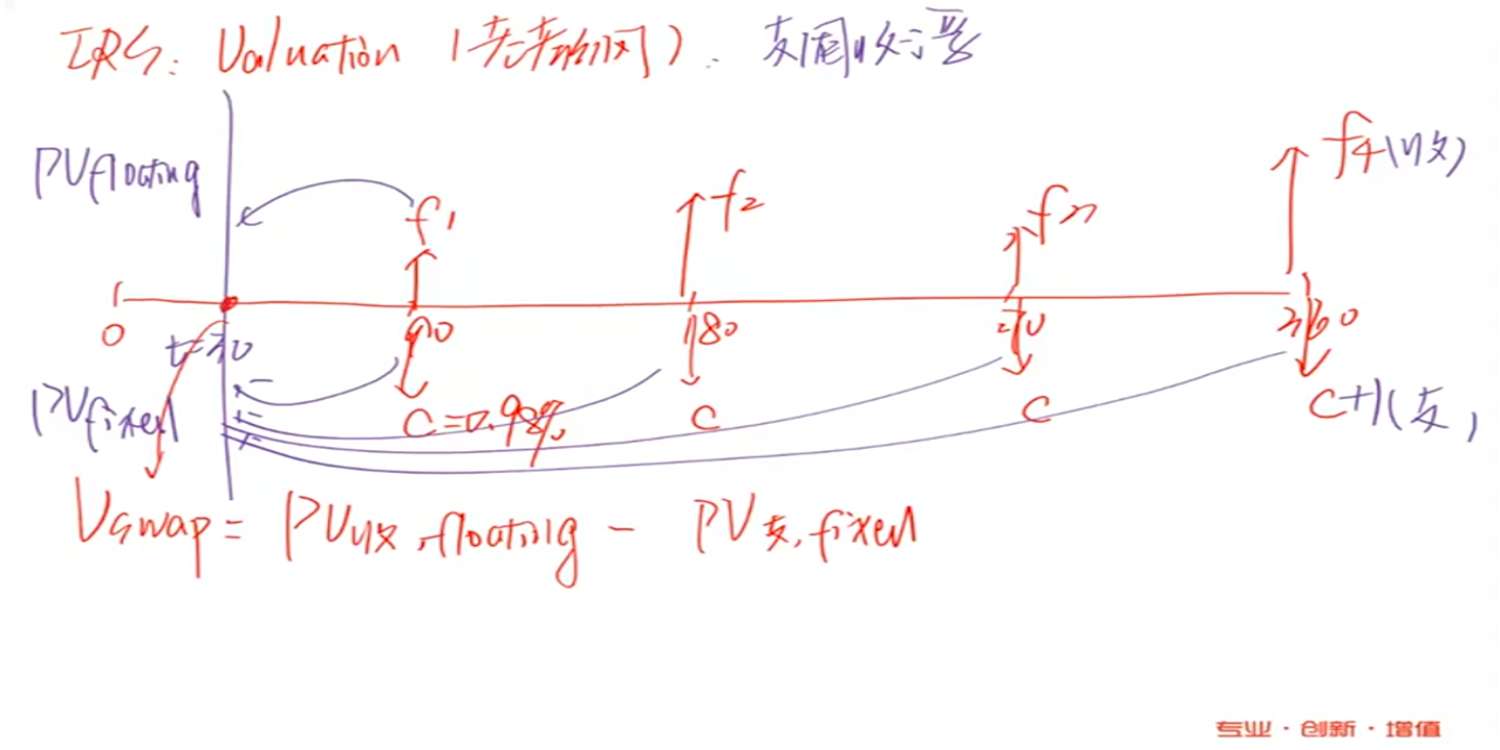 IRS: Valuation (先求后网). 支固收浮
PVfloating
f1
f2
f3
f4(收)
0
t=30
90
180
270
360
PVfixed
C=0.98%
C
C
C+1(支)
Vswap = PV收,floating - PV支,fixed
专业·创新·增值